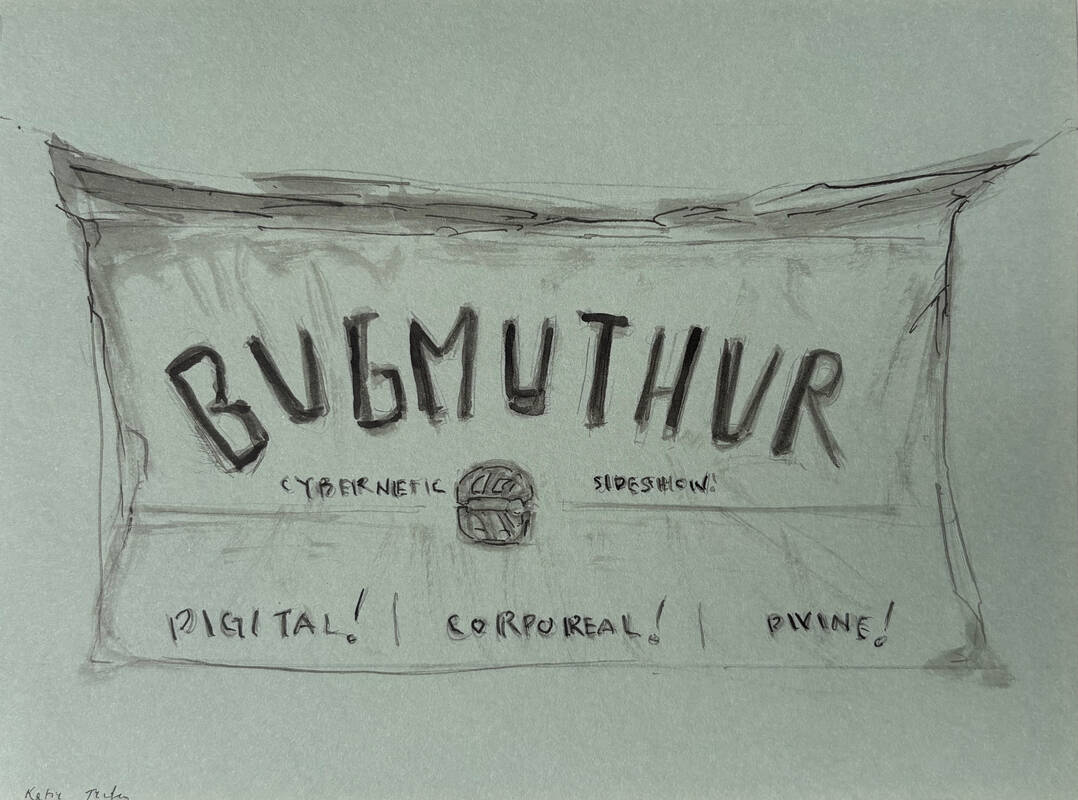 BUGMUTHUR
CYBERNETIC SIDESHOW!
DIGITAL! | CORPOREAL! | DIVINE!